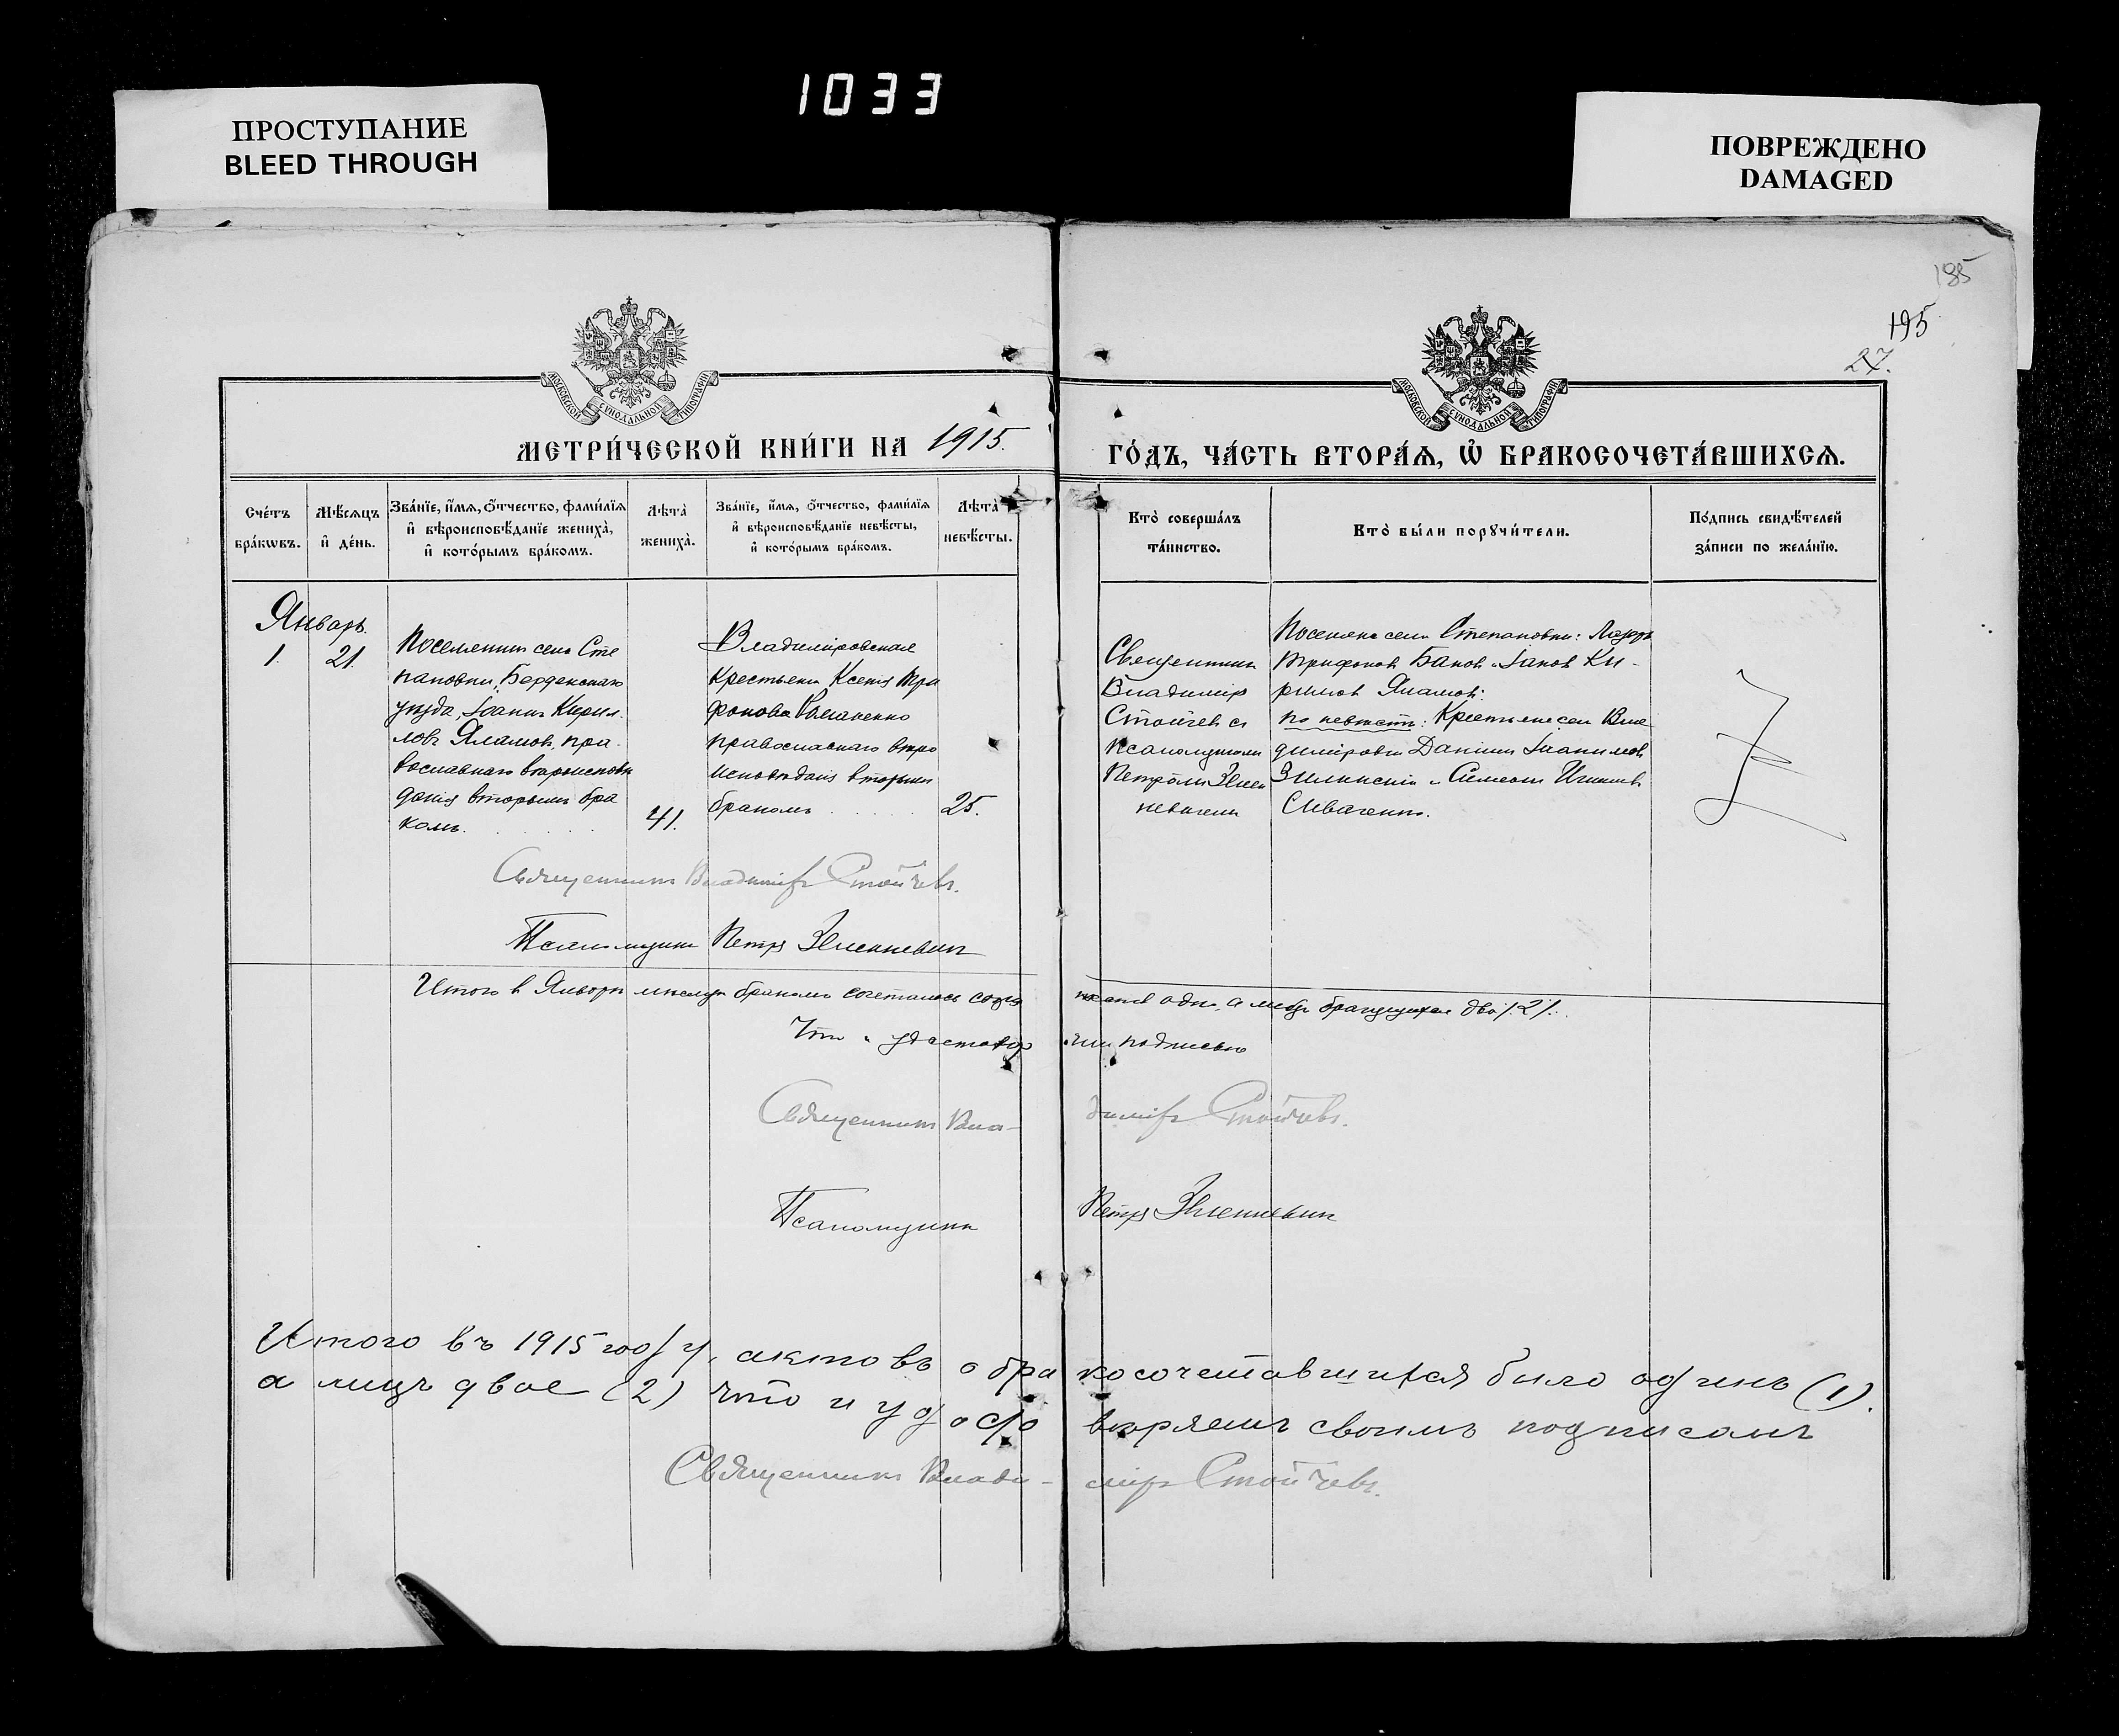 1033
ПРОСТУПАНИЕ
BLEED THROUGH
ПОВРЕЖДЕНО
DAMAGED
185
195
27.
МОСКОВСКОЙ СѴНОДАЛЬНОЙ ТИПОГРАФІИ
МОСКОВСКОЙ СѴНОДАЛЬНОЙ ТИПОГРАФІИ
МЕТРИ́ЧЕСКОЙ КНИ́ГИ НА 1915.
ГО́ДЪ, ЧА́СТЬ ВТОРА́Ѧ, Ѡ҆ БРАКОСОЧЕТА́ВШИХСѦ.
Сче́тъ
бра́кѡвъ.
Мѣ́сѧцъ
и҆ де́нь.
Зва́нїе, и҆́мѧ, ѻ҆́тчество, фами́лїѧ
и҆ вѣроисповѣ́данїе жениха̀,
и҆ кото́рымъ бра́комъ.
Лѣта̀
жениха̀.
Зва́нїе, и҆́мѧ, ѻ҆́тчество, фами́лїѧ
и҆ вѣроисповѣ́данїе невѣ́сты,
и҆ кото́рымъ бра́комъ.
Лѣта̀
невѣ́сты.
Кто̀ соверша́лъ
та́инство.
Кто̀ бы́ли порꙋчи́тели.
По́дпись свидѣ́телей
за́писи по жела́нїю.
Январь.
1. 21.
Поселянинъ села Сте
пановки, Бердянскаго
уѣзда, Іоаннъ Кирил
ловъ Яламовъ, пра-
вославнаго вѣроисповѣ
данія вторымъ бра
комъ.
41.
Владиміровская
крестьянка Ксенія Три
фонова
православнаго вѣро
исповѣданія вторымъ
бракомъ
25.
Священникъ
Владиміръ
Стойчевъ съ
псаломщикомъ
Петромъ
Поселяне села Степановки: Лазарь
Трифоновъ Бановъ Іаковъ Ки-
рилловъ Яламовъ:
по невѣстѣ: Крестьяне села Вла
диміровки Даніилъ
и Симеонъ
Сиваченко.
Священникъ Владиміръ Стойчевъ.
Псаломщикъ Петръ
Итого в Январѣ мѣсяцѣ бракомъ сочеталось
одна, а лицъ два /2/.
Что и удостовѣр подписью
Священникъ Вла-диміръ Стойчевъ.
Псаломщикъ Петръ
Итого въ 1915 году, актовъ о бракосочетавшихся было одинъ (1).
а лицъ двое (2) что и удосто вѣряемъ своимъ подписомъ
Священникъ Влади-міръ Стойчевъ.